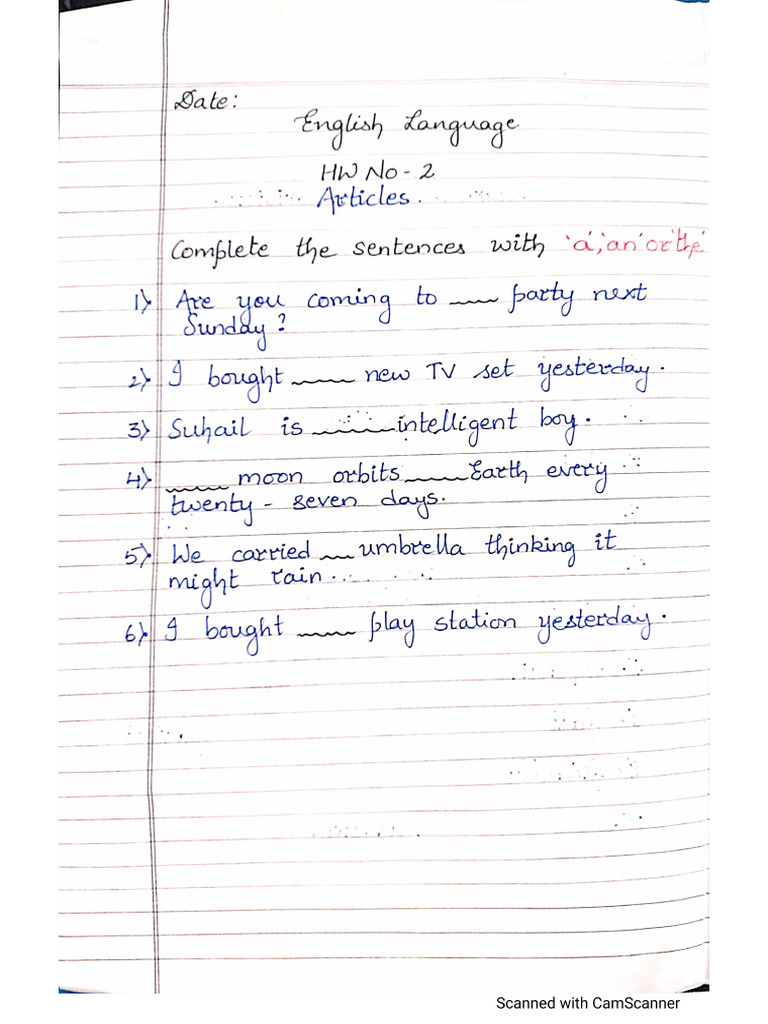 Date:
English Language
HW No - 2
Articles.
Complete the sentences with 'a', 'an' or 'the'
1) Are you coming to ____ party next
Sunday?
2) I bought ____ new TV set yesterday.
3) Suhail is ____ intelligent boy.
4) ____ moon orbits ____ Earth every
twenty - seven days.
5) We carried ____ umbrella thinking it
might rain.
6) I bought ____ play station yesterday.
Scanned with CamScanner